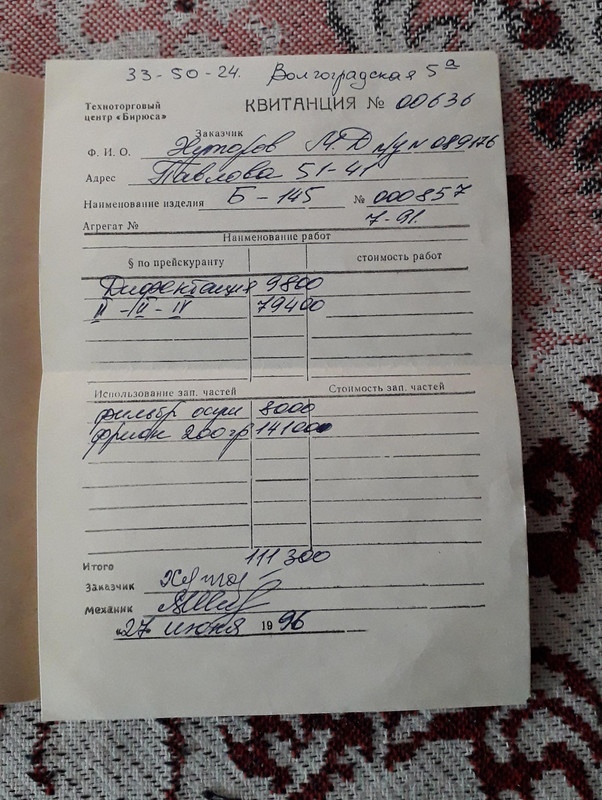 33-50-24. Волгоградская 5а
Техноторговый
центр «Бирюса»
КВИТАНЦИЯ № 00636
Заказчик
Ф. И. О. Хуторов М.Д 089176
Адрес Павлова 51-41
Наименование изделия Б-145 № 000857
Агрегат № 7-91.
Наименование работ
§ по прейскуранту стоимость работ
Дифектация 9800
79400
Использование зап. частей Стоимость зап. частей
фильтр осуш 8000
фрион 200гр 14100
Итого 111300
Заказчик
механик
«27» июня 1996